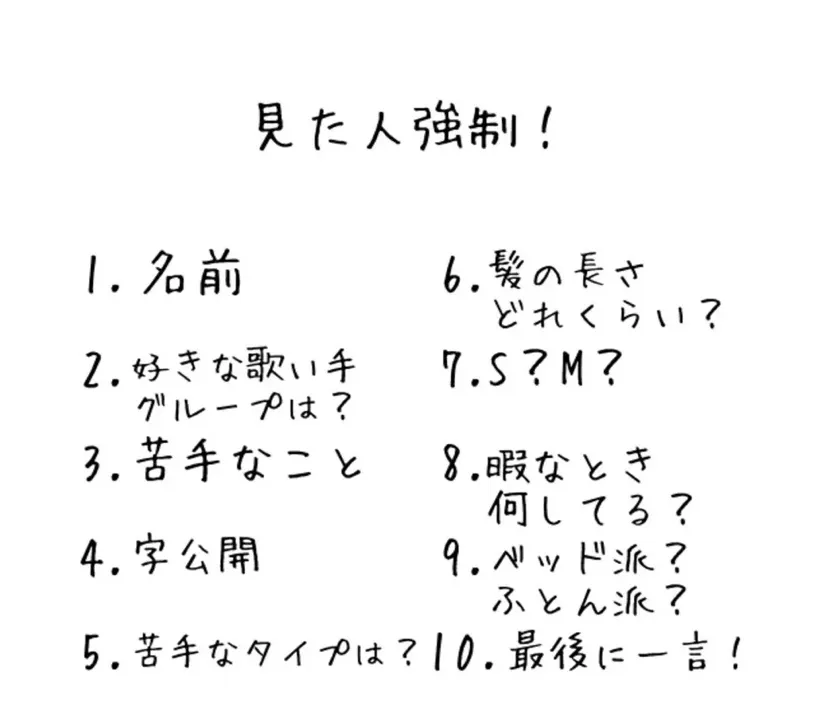 見た人強制!
1. 名前
2. 好きな歌い手
グループは?
3. 苦手なこと
4. 字公開
5. 苦手なタイプは?
6. 髪の長さ
どれくらい?
7. S?M?
8. 暇なとき
何してる?
9. ベッド派?
ふとん派?
10. 最後に一言!